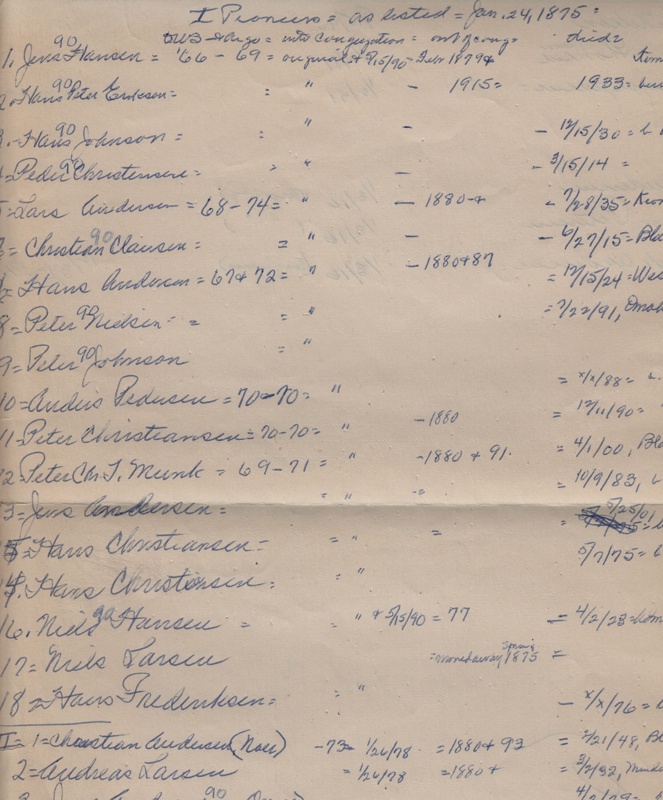 I Pioneers = as listed = Jan. 24, 1875 =
into Congregation = out of cong = died =
1. Jens 90 Hansen = '66 - 69 = original + 5/15/90 - Feb 1879+
2. Hans 90 Peter Erikson = = " - 1915 = 1933 =
3. - Hans 90 Johnson = : " - - 12/15/30 =
4 = Peder 90 Christensen = = " - - 3/15/14 =
5 = Lars Andersen = 68 - 74 = " - 1880 - + - 7/28/35 =
= Christian 90 Clausen = = " - - 6/27/15 =
= Hans Andersen = 67 + 72 = " - 1880 + 87 = 12/15/24 =
8 = Peter 90 Nielsen = = = " = 7/22/91, Omah
9 = Peter 90 Johnson = "
= x/x/88 =
10 = Anders Pedersen = 70 - 70 = " = 12/11/90 =
11 Peter Christiansen = 70 - 70 = " - 1880 = 4/1/00,
12 Peter Chr. T. Munk = 69 - 71 = " - 1880 + 91. = 10/9/83,
3 = Jens Andersen = = " - = = 5/25/01
= Hans Christiansen = = " = 5/7/75 =
14. Hans Christensen = = "
16. Niels 90 Hansen = = " + 5/15/90 = 77 = 4/2/23 =
17 = Niels Larsen = moved away Spring 1875 =
18 = Hans Frederiksen = = " - x/x/76 =
I = 1 = Christian Andersen - 73 = 1/26/78 = 1880 + 93 = 2/21/48,
2 = Andreas Larsen = 1/26/78 = 1880 + = 3/2/32,
90